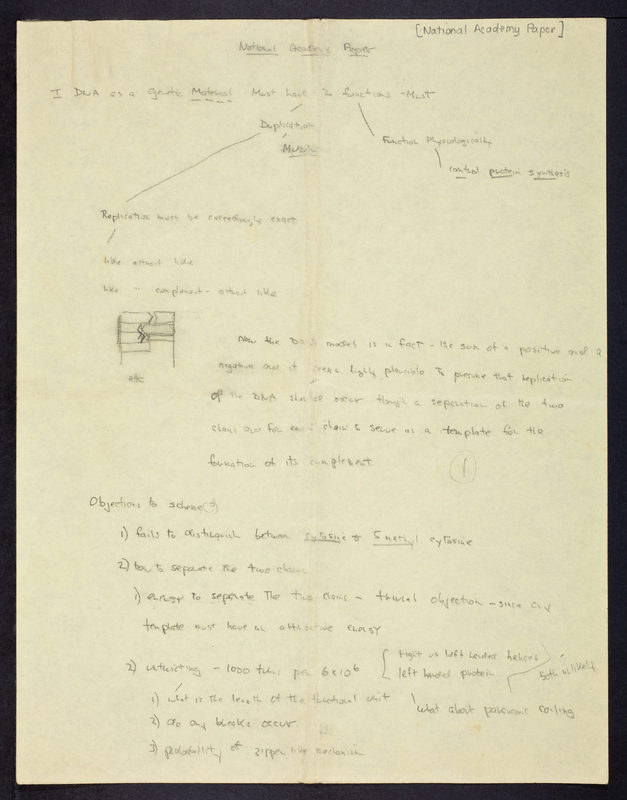 [National Academy Paper]
National Academy Paper
I DNA as a Genetic Material Must have 2 functions - Must
Duplication
Function Physiologically
control protein synthesis
Replication must be exceedingly exact
like attract like
like " complement - attract like
etc
Now the DNA model is in fact - the sum of a positive and a
negative and it seems highly plausible to presume that replication
of the DNA should occur through a separation of the two
chains and for each chain to serve as a template for the
formation of its complement.
1
Objections to scheme (?)
1) fails to distinguish between cytosine & 5 methyl cytosine
2) how to separate the two chains
1) energy to separate the two chains - trivial objection - since any
template must have an attractive energy
2) untwisting - 1000 turns per 6x10⁶
right vs left handed helices
left handed protein
both unlikely
1) what is the length of the functional unit
what about paranemic coiling
2) do any breaks occur
3) probability of zipper like mechanism